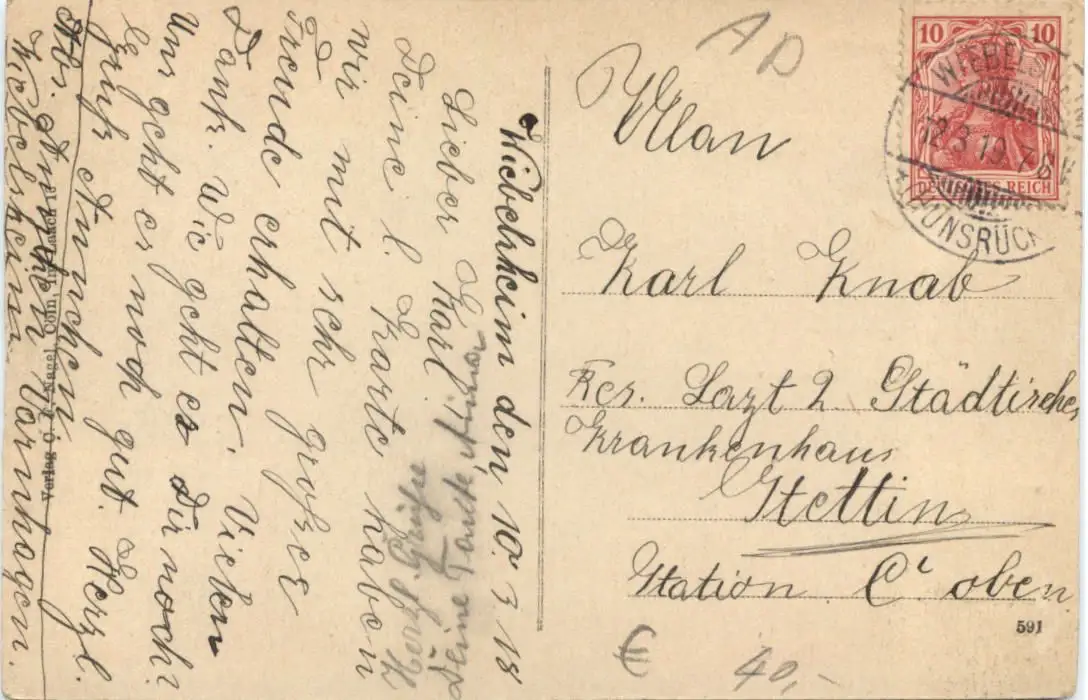 Wiebelsheim den, 10. 3 18
Lieber Karl
Deine l. Karte haben
wir mit sehr großer
Freude erhalten. Vielen
Dank. Wie geht es Dir noch?
Uns geht es noch gut. Herzl.
Gruß Annchen
Abs. Annchen Vornhagen.
Wiebelsheim
Herzl. Grüße
Deine Tante,
Verlag Nagel, Cöln, Im Laach
AD
10 10
DEUTSCHES REICH
12.3.19. 7-8V
HUNSRÜCK
Ulan
Karl Knab
Res. Lazt 2. Städtisches
Krankenhaus
Stettin
Station C¹ oben
591
€ 40,-